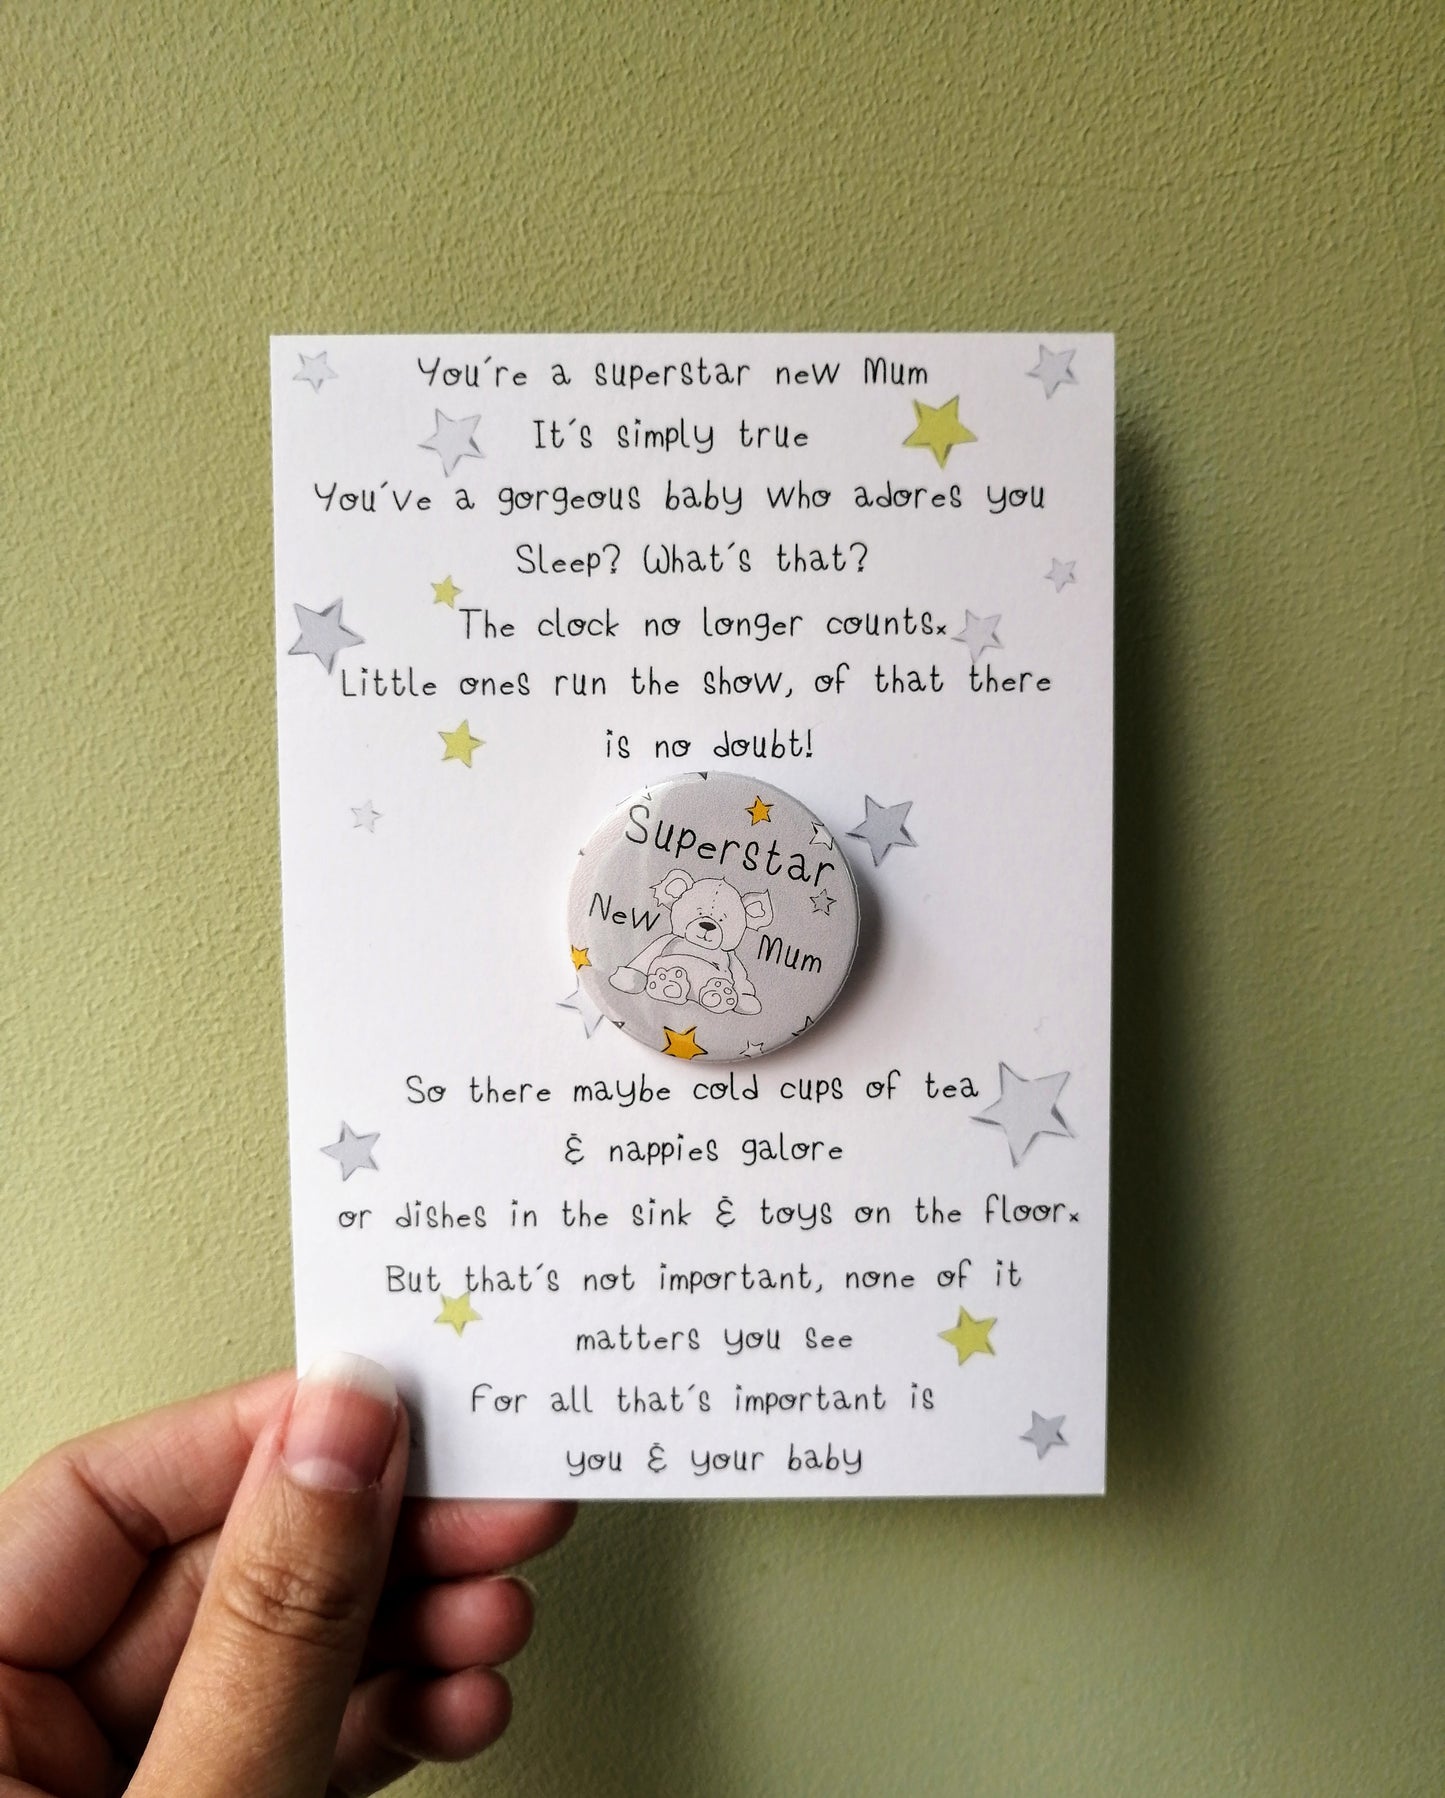 You're a superstar new Mum
It's simply true
You've a gorgeous baby who adores you
Sleep? What's that?
The clock no longer counts.
Little ones run the show, of that there
is no doubt!
Superstar
New Mum
So there maybe cold cups of tea
& nappies galore
or dishes in the sink & toys on the floor.
But that's not important, none of it
matters you see
For all that's important is
you & your baby